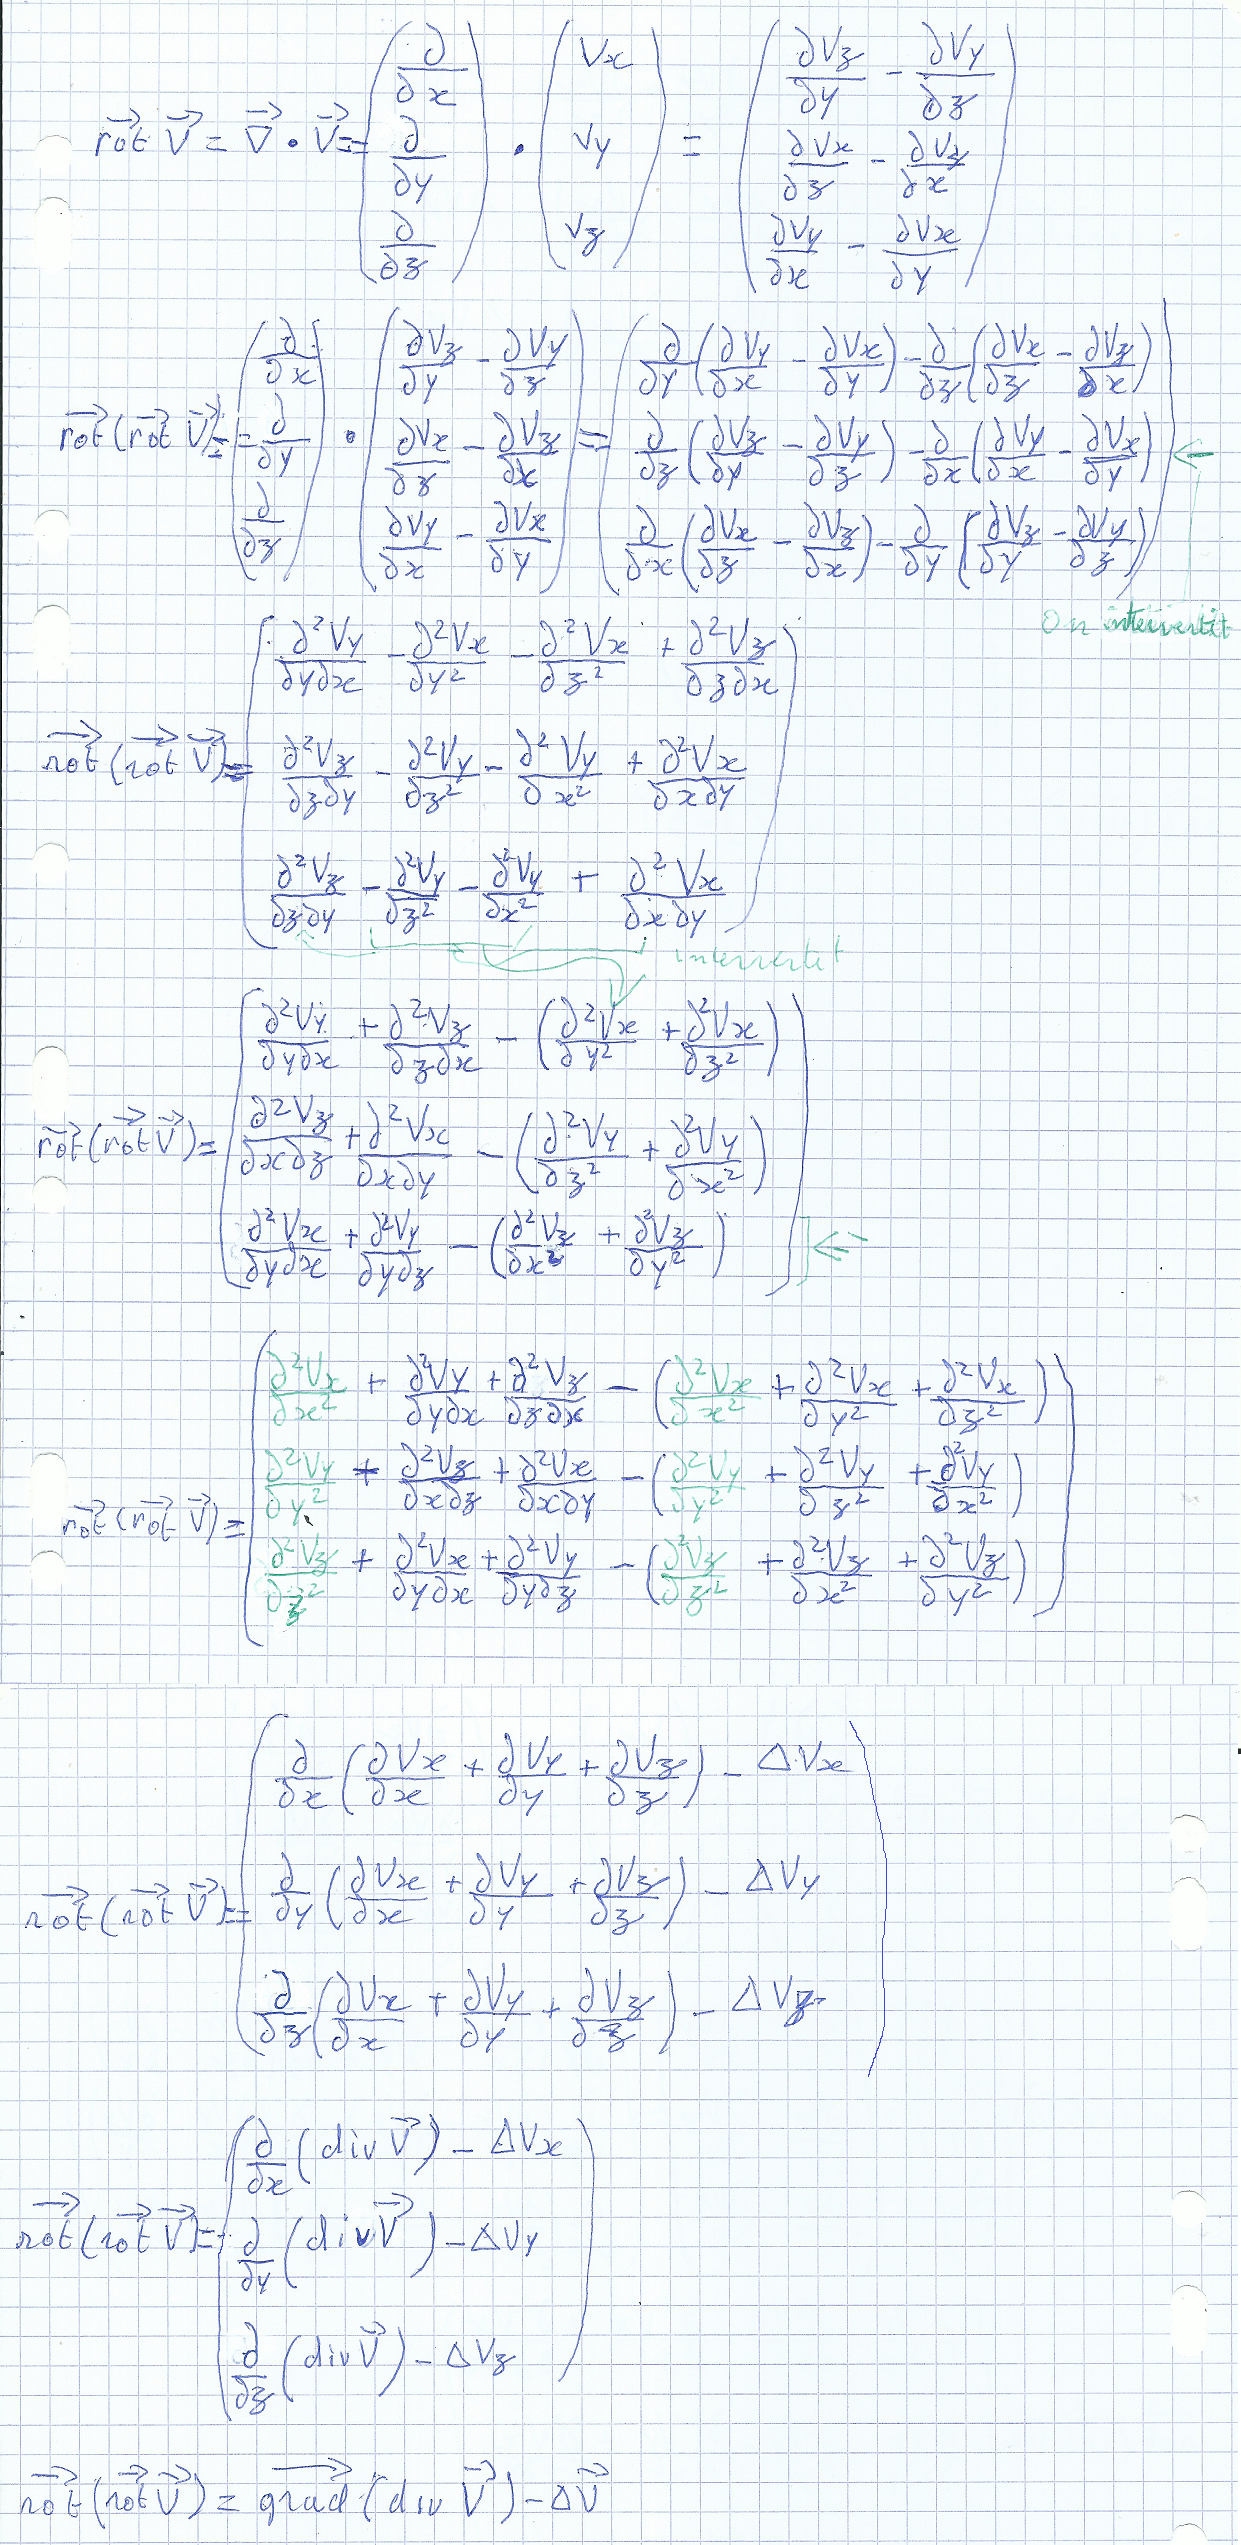 $\overrightarrow{rot}\ \vec{V} = \vec{\nabla} \cdot \vec{V} = \begin{pmatrix} \frac{\partial}{\partial x} \\ \frac{\partial}{\partial y} \\ \frac{\partial}{\partial z} \end{pmatrix} \cdot \begin{pmatrix} Vx \\ Vy \\ Vz \end{pmatrix} = \begin{pmatrix} \frac{\partial Vz}{\partial y} - \frac{\partial Vy}{\partial z} \\ \frac{\partial Vx}{\partial z} - \frac{\partial Vz}{\partial x} \\ \frac{\partial Vy}{\partial x} - \frac{\partial Vx}{\partial y} \end{pmatrix}$
$\overrightarrow{rot}(\overrightarrow{rot}\ \vec{V}) = \begin{pmatrix} \frac{\partial}{\partial x} \\ \frac{\partial}{\partial y} \\ \frac{\partial}{\partial z} \end{pmatrix} \cdot \begin{pmatrix} \frac{\partial Vz}{\partial y} - \frac{\partial Vy}{\partial z} \\ \frac{\partial Vx}{\partial z} - \frac{\partial Vz}{\partial x} \\ \frac{\partial Vy}{\partial x} - \frac{\partial Vx}{\partial y} \end{pmatrix} = \begin{pmatrix} \frac{\partial}{\partial y}(\frac{\partial Vy}{\partial x} - \frac{\partial Vx}{\partial y}) - \frac{\partial}{\partial z}(\frac{\partial Vx}{\partial z} - \frac{\partial Vz}{\partial x}) \\ \frac{\partial}{\partial z}(\frac{\partial Vz}{\partial y} - \frac{\partial Vy}{\partial z}) - \frac{\partial}{\partial x}(\frac{\partial Vy}{\partial x} - \frac{\partial Vx}{\partial y}) \\ \frac{\partial}{\partial x}(\frac{\partial Vx}{\partial z} - \frac{\partial Vz}{\partial x}) - \frac{\partial}{\partial y}(\frac{\partial Vz}{\partial y} - \frac{\partial Vy}{\partial z}) \end{pmatrix}$ ←
On intervertit
$\overrightarrow{rot}(\overrightarrow{rot}\ \vec{V}) = \begin{pmatrix} \frac{\partial^2 Vy}{\partial y \partial x} - \frac{\partial^2 Vx}{\partial y^2} - \frac{\partial^2 Vx}{\partial z^2} + \frac{\partial^2 Vz}{\partial z \partial x} \\ \frac{\partial^2 Vz}{\partial z \partial y} - \frac{\partial^2 Vy}{\partial z^2} - \frac{\partial^2 Vy}{\partial x^2} + \frac{\partial^2 Vx}{\partial x \partial y} \\ \frac{\partial^2 Vz}{\partial z \partial y} - \frac{\partial^2 Vy}{\partial z^2} - \frac{\partial^2 Vy}{\partial x^2} + \frac{\partial^2 Vx}{\partial x \partial y} \end{pmatrix}$
intervertit
$\overrightarrow{rot}(\overrightarrow{rot}\ \vec{V}) = \begin{pmatrix} \frac{\partial^2 Vy}{\partial y \partial x} + \frac{\partial^2 Vz}{\partial z \partial x} - (\frac{\partial^2 Vx}{\partial y^2} + \frac{\partial^2 Vx}{\partial z^2}) \\ \frac{\partial^2 Vz}{\partial x \partial z} + \frac{\partial^2 Vx}{\partial x \partial y} - (\frac{\partial^2 Vy}{\partial z^2} + \frac{\partial^2 Vy}{\partial x^2}) \\ \frac{\partial^2 Vx}{\partial y \partial x} + \frac{\partial^2 Vy}{\partial y \partial z} - (\frac{\partial^2 Vz}{\partial x^2} + \frac{\partial^2 Vz}{\partial y^2}) \end{pmatrix}$ ←
$\overrightarrow{rot}(\overrightarrow{rot}\ \vec{V}) = \begin{pmatrix} \frac{\partial^2 Vx}{\partial x^2} + \frac{\partial^2 Vy}{\partial y \partial x} + \frac{\partial^2 Vz}{\partial z \partial x} - (\frac{\partial^2 Vx}{\partial x^2} + \frac{\partial^2 Vx}{\partial y^2} + \frac{\partial^2 Vx}{\partial z^2}) \\ \frac{\partial^2 Vy}{\partial y^2} + \frac{\partial^2 Vz}{\partial x \partial z} + \frac{\partial^2 Vx}{\partial x \partial y} - (\frac{\partial^2 Vy}{\partial y^2} + \frac{\partial^2 Vy}{\partial z^2} + \frac{\partial^2 Vy}{\partial x^2}) \\ \frac{\partial^2 Vz}{\partial z^2} + \frac{\partial^2 Vx}{\partial y \partial x} + \frac{\partial^2 Vy}{\partial y \partial z} - (\frac{\partial^2 Vz}{\partial z^2} + \frac{\partial^2 Vz}{\partial x^2} + \frac{\partial^2 Vz}{\partial y^2}) \end{pmatrix}$
$\overrightarrow{rot}(\overrightarrow{rot}\ \vec{V}) = \begin{pmatrix} \frac{\partial}{\partial x}(\frac{\partial Vx}{\partial x} + \frac{\partial Vy}{\partial y} + \frac{\partial Vz}{\partial z}) - \Delta Vx \\ \frac{\partial}{\partial y}(\frac{\partial Vx}{\partial x} + \frac{\partial Vy}{\partial y} + \frac{\partial Vz}{\partial z}) - \Delta Vy \\ \frac{\partial}{\partial z}(\frac{\partial Vx}{\partial x} + \frac{\partial Vy}{\partial y} + \frac{\partial Vz}{\partial z}) - \Delta Vz \end{pmatrix}$
$\overrightarrow{rot}(\overrightarrow{rot}\ \vec{V}) = \begin{pmatrix} \frac{\partial}{\partial x}(div \vec{V}) - \Delta Vx \\ \frac{\partial}{\partial y}(div \vec{V}) - \Delta Vy \\ \frac{\partial}{\partial z}(div \vec{V}) - \Delta Vz \end{pmatrix}$
$\overrightarrow{rot}(\overrightarrow{rot}\ \vec{V}) = \overrightarrow{grad}(div\ \vec{V}) - \Delta \vec{V}$